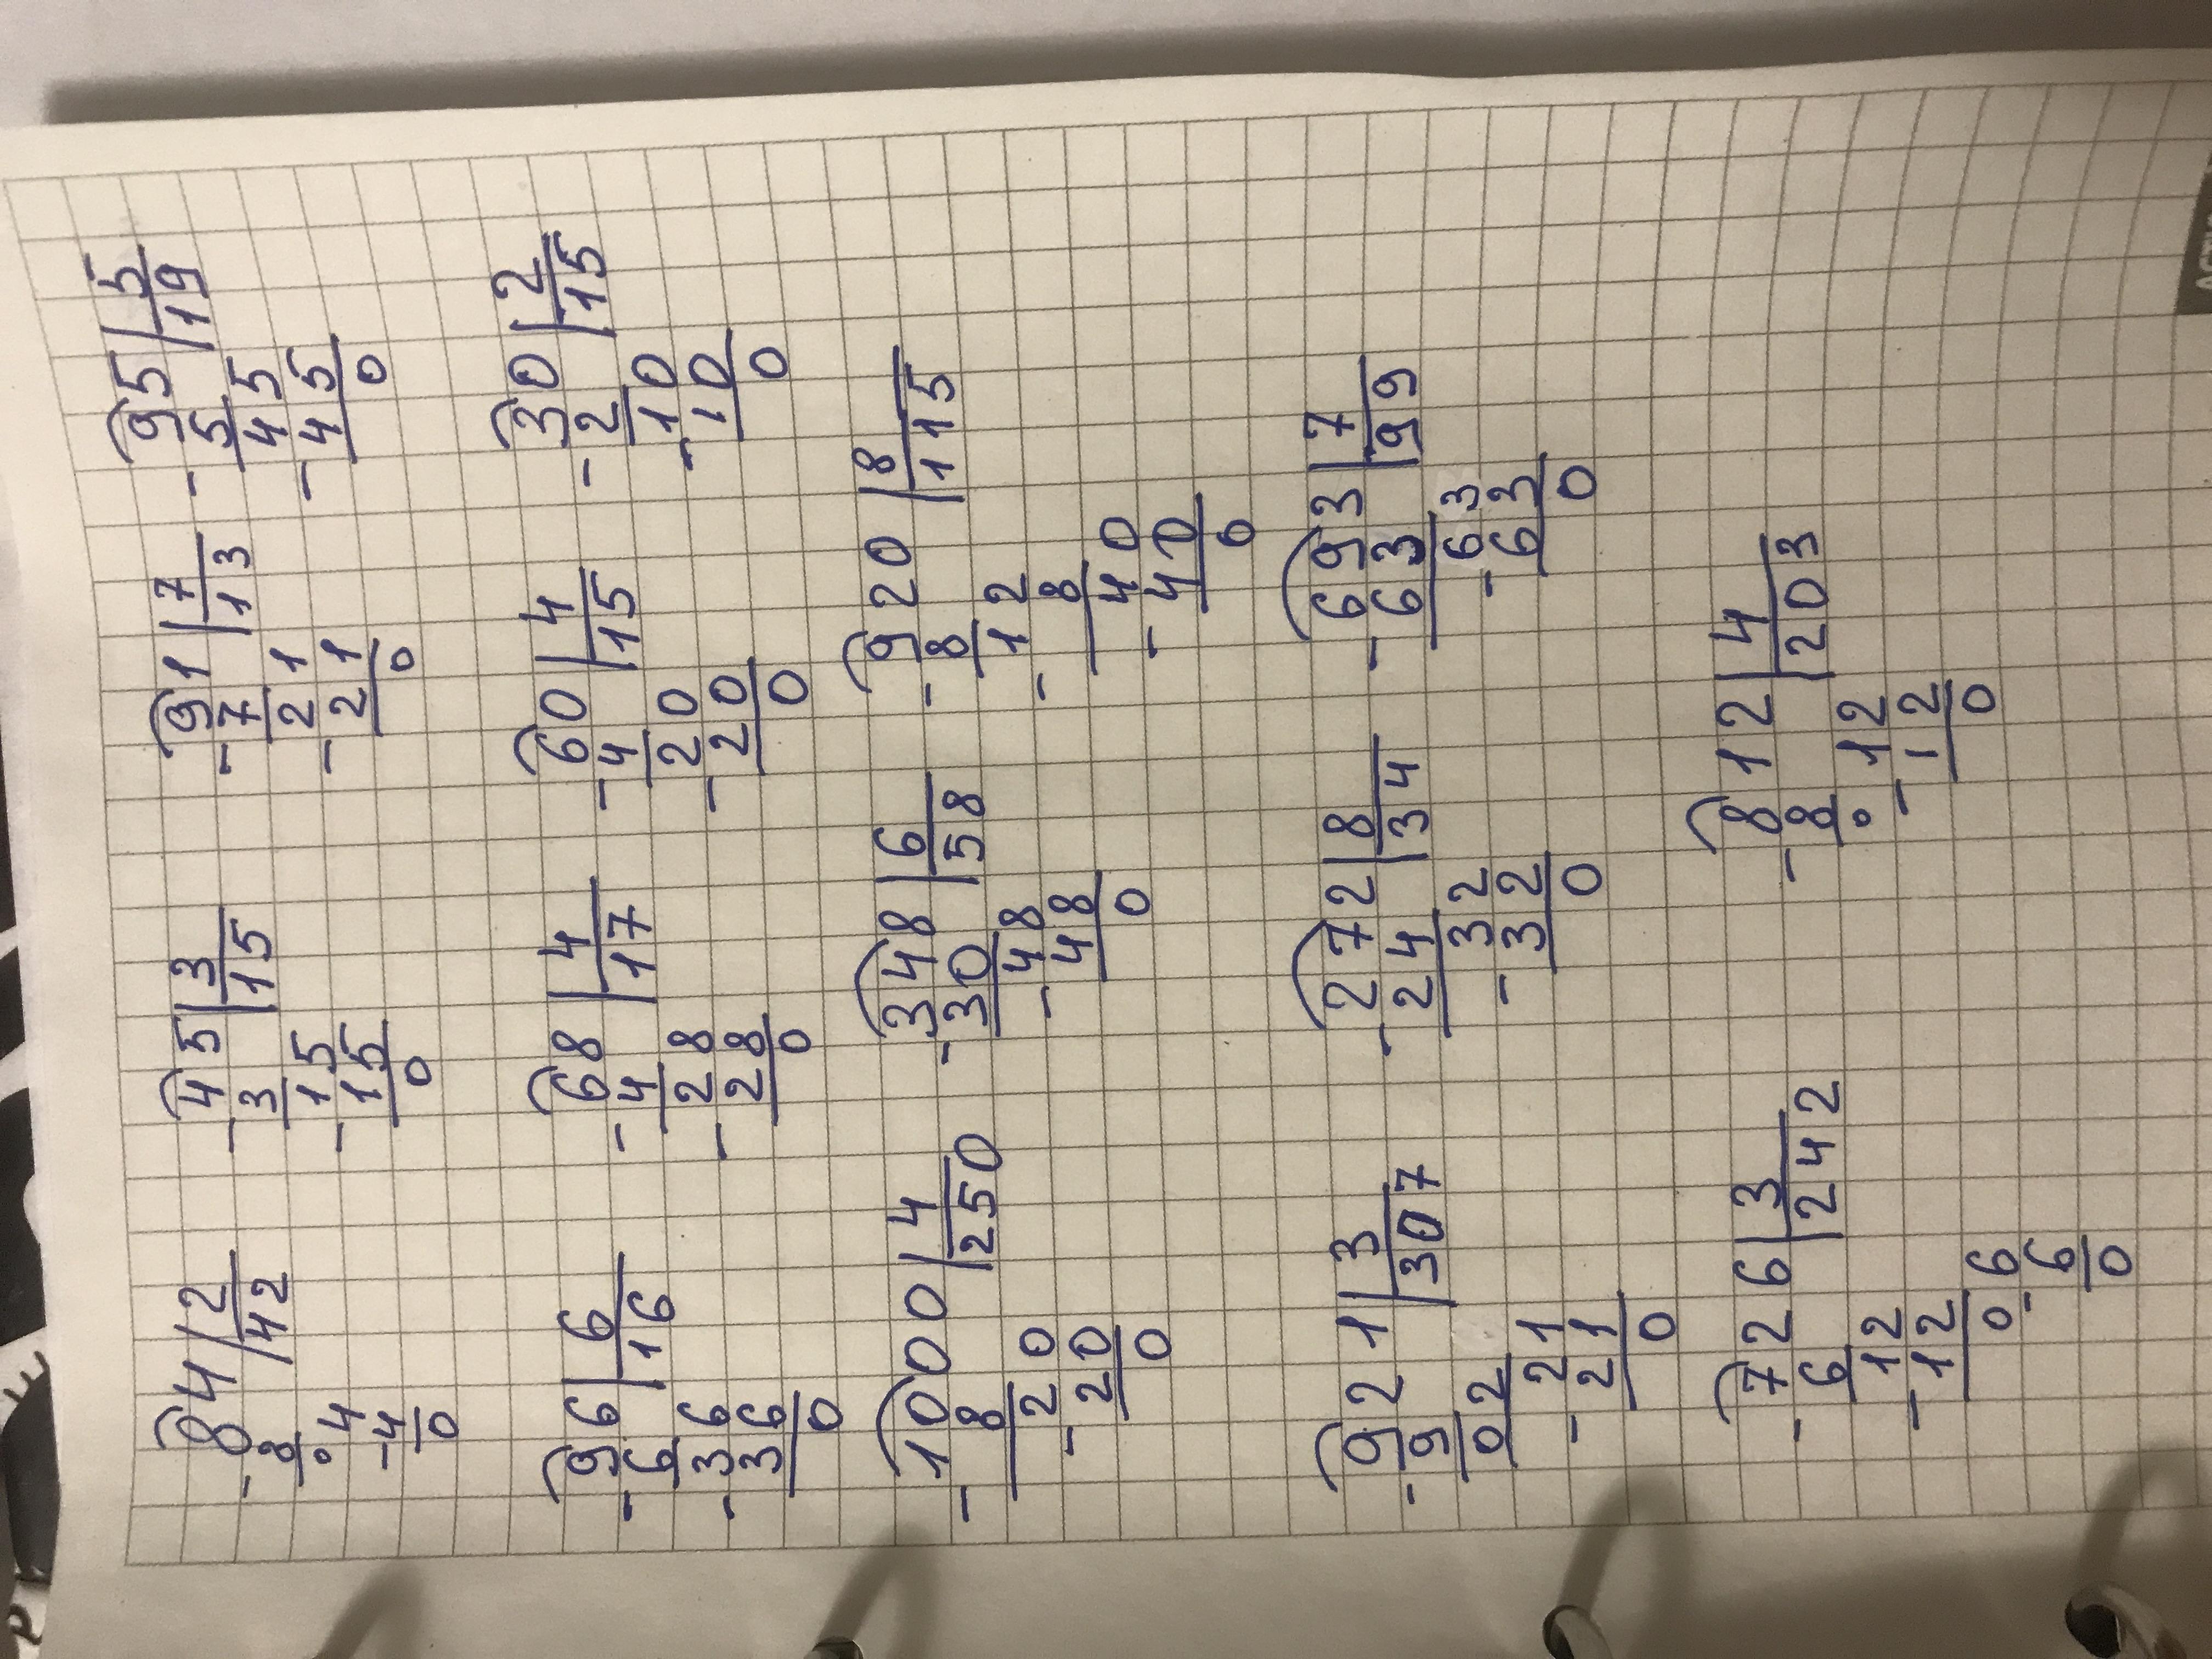 84 | 2   45 | 3   91 | 7   95 | 5
- 8 | 42   - 3 | 15   - 7 | 13   - 5 | 19
0 4   15   21   45
- 4   - 15   - 21   - 45
0   0   0   0
96 | 6   68 | 4   60 | 4   30 | 2
- 6 | 16   - 4 | 17   - 4 | 15   - 2 | 15
36   28   20   10
- 36   - 28   - 20   - 10
0   0   0   0
1000 | 4   348 | 6   920 | 8
- 8 | 250   - 30 | 58   - 8 | 115
20   48   12
- 20   - 48   - 8
0   0   40
- 40
0
921 | 3   272 | 8   693 | 7
- 9 | 307   - 24 | 34   - 63 | 99
02   32   63
21   - 32   - 63
- 21   0   0
0
726 | 3   812 | 4
- 6 | 242   - 8 | 203
12   0 12
- 12   - 12
0 6   0
- 6
0